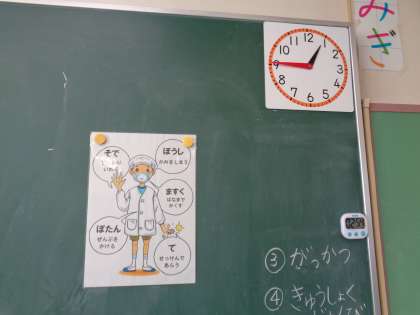 みぎ
12
1
2
3
4
5
6
7
8
9
10
11
そで
いれる
ぼうし
かみをしまう
ますく
はなまで
かくす
ぼたん
ぜんぶを
かける
て
せっけんで
あらう
③ がっかつ
④ きゅうしょく